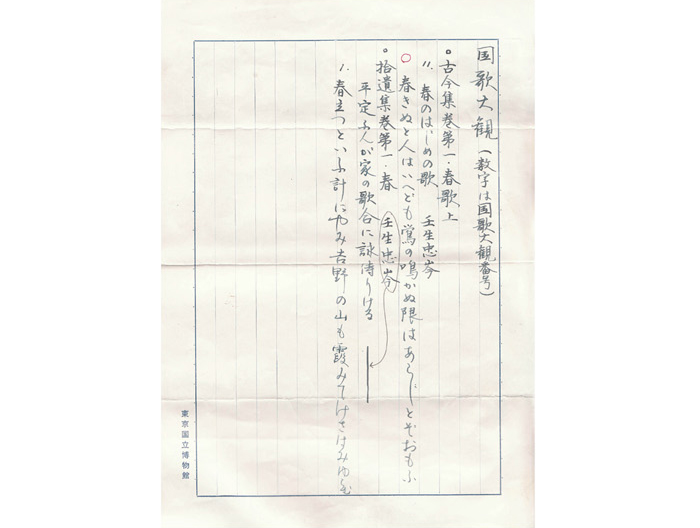 国歌大観(数字は国歌大観番号)
古今集巻第一・春歌上
11. 春のはじめの歌 壬生忠岑
春きぬと人はいへども鴬の鳴かぬ限はあらじとぞおもふ
拾遺集巻第一・春 壬生忠岑
平定ふんが家の歌合に詠侍りける
1. 春立つといふ計にやみ吉野の山も霞みてけさはみゆ
東京国立博物館